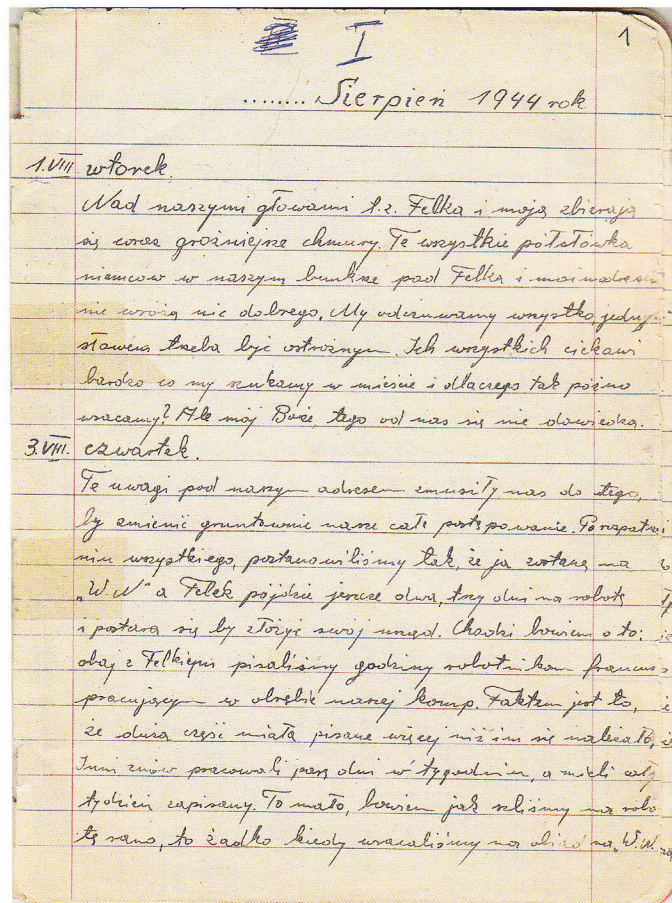 I 1
........ Sierpień 1944 rok
1.VIII wtorek.
Nad naszymi głowami t.z. Felka i moją zbierają
się coraz groźniejsze chmury. Te wszystkie półsłówka
niemców w naszym bunkrze pod Felka i moim adresem
nie wróżą nic dobrego. My odczuwamy wszystko, jednym
słowem trzeba być ostrożnym. Ich wszystkich ciekawi
bardzo co my szukamy w mieście i dlaczego tak późno
wracamy? Ale mój Boże, tego od nas się nie dowiedzą.
3.VIII. czwartek.
Te uwagi pod naszym adresem zmusiły nas do tego,
by zmienić gruntownie nasze całe postępowanie. Po rozpatrze
niu wszystkiego, postanowiliśmy tak, że ja zostanę na
„W.N" a Felek pójdzie jeszcze dwa, trzy dni na robotę
i postara się by złożyć swój urząd. Chodzi bowiem o to;
obaj z Felkiem pisaliśmy godziny robotnikom francus
pracującym w obrębie naszej komp. Faktem jest to,
że duża część miała pisane więcej niż im się należało,
Inni znów pracowali parę dni w tygodniu, a mieli cały
tydzień zapisany. To mało, bowiem jak szliśmy na robo
tę rano, to żadko kiedy wracaliśmy na obiad na „W.N.